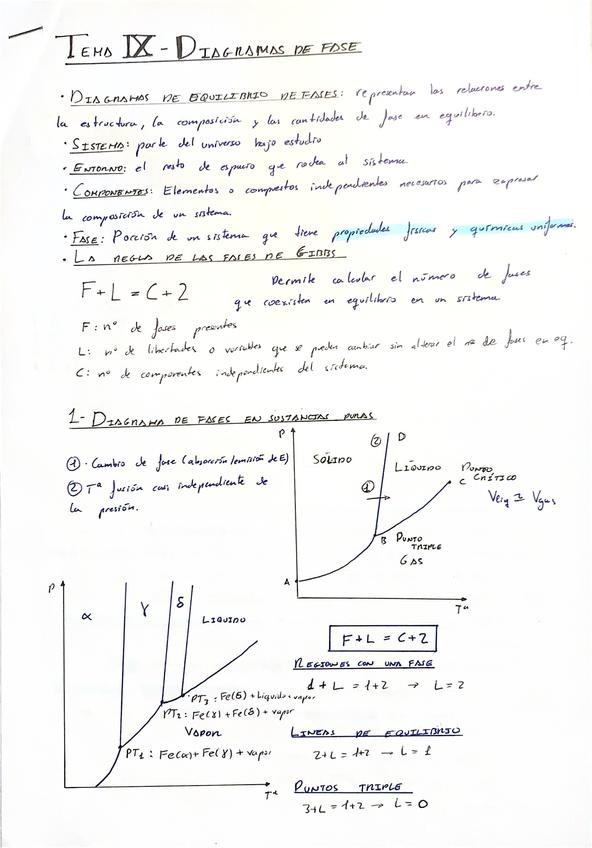 TEMA IX - DIAGRAMAS DE FASE
· DIAGRAMAS DE EQUILIBRIO DE FASES: representan las relaciones entre
la estructura, la composición y las cantidades de fase en equilibrio.
· SISTEMA: parte del universo bajo estudio
· ENTORNO: el resto de espacio que rodea al sistema.
· COMPONENTES: Elementos o compuestos independientes necesarios para expresar
la composición de un sistema.
· FASE: Porción de un sistema que tiene propiedades físicas y químicas uniformes.
· LA REGLA DE LAS FASES DE GIBBS
F + L = C + 2
Permite calcular el número de fases
que coexisten en equilibrio en un sistema
F: nº de fases presentes
L: nº de libertades o variables que se pueden cambiar sin alterar el nº de fases en eq.
C: nº de componentes independientes del sistema.
1- DIAGRAMA DE FASES EN SUSTANCIAS PURAS
① · Cambio de fase (absorción/emisión de E)
② Tª fusión casi independiente de
la presión.
P
② D
SÓLIDO
LÍQUIDO
PUNTO
C CRÍTICO
Vliq ≅ Vgas
①
B PUNTO
TRIPLE
GAS
A
Tª
P
α
γ
δ
LIQUIDO
PT3: Fe(δ) + Liquido + vapor
PT2: Fe(γ) + Fe(δ) + vapor
VAPOR
PT1: Fe(α) + Fe(γ) + vapor
Tª
F + L = C + 2
REGIONES CON UNA FASE
1 + L = 1 + 2 → L = 2
LINEAS DE EQUILIBRIO
2 + L = 1 + 2 → L = 1
PUNTOS TRIPLE
3 + L = 1 + 2 → L = 0